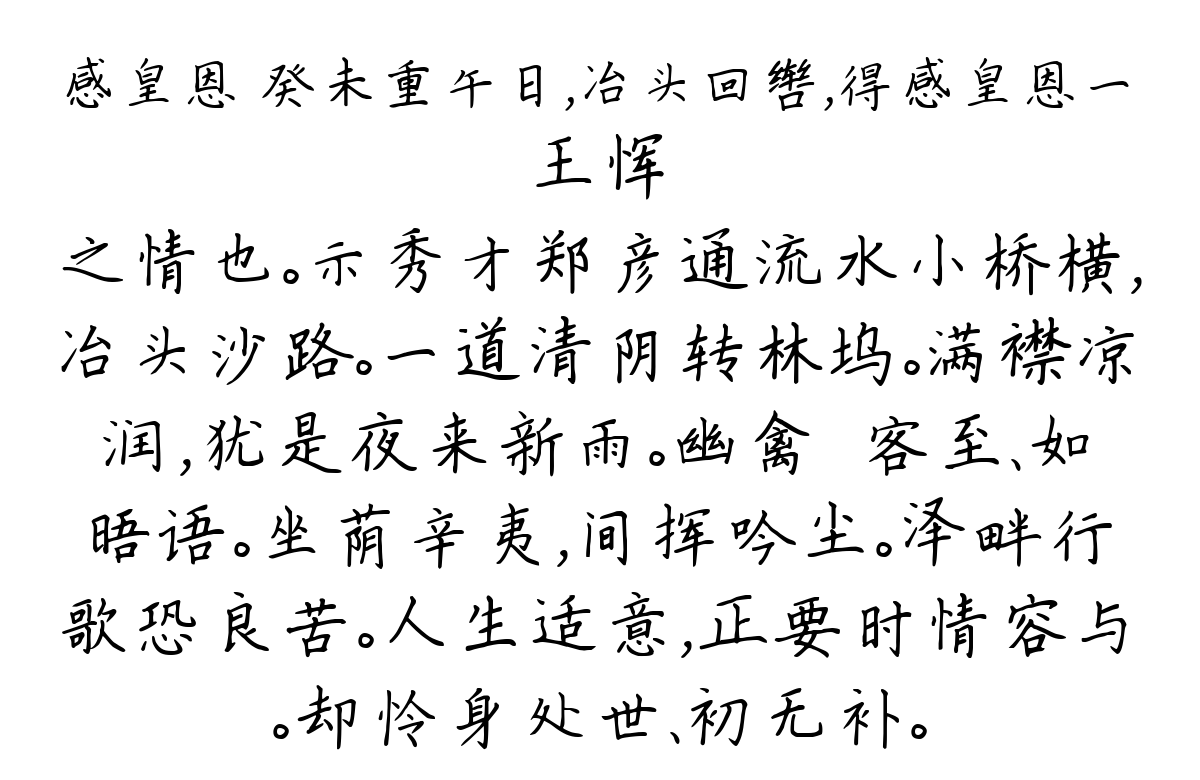 感皇恩 癸未重午日,冶头回辔,得感皇恩一
王恽
之情也。示秀才郑彦通流水小桥横,
冶头沙路。一道清阴转林坞。满襟凉
润,犹是夜来新雨。幽禽 客至、如
晤语。坐荫辛夷,间挥吟尘。泽畔行
歌恐良苦。人生适意,正要时情容与
。却怜身处世、初无补。